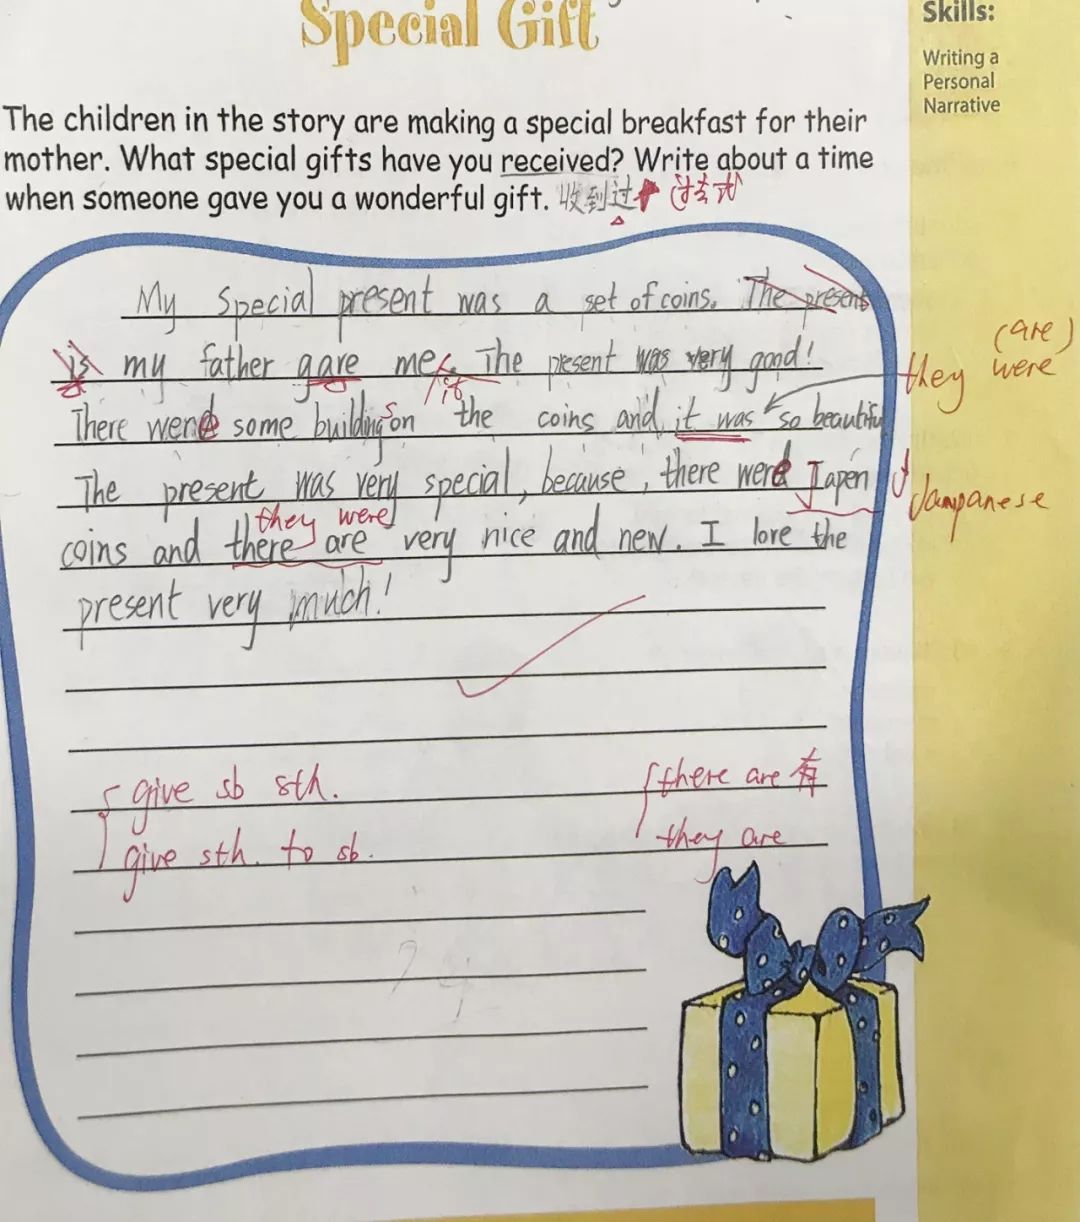 Special Gift
Skills:
Writing a
Personal
Narrative
The children in the story are making a special breakfast for their
mother. What special gifts have you received? Write about a time
when someone gave you a wonderful gift. 收到过 过去式
My Special present was a set of coins. The present
is my father gave me it. The present was very good!
they were (are)
There were some buildings on the coins and it was so beautiful
The present was very special, because, there were Japen
Jampanese
they were
coins and there are very nice and new. I love the
present very much!
give sb sth. there are 有
give sth. to sb. they are